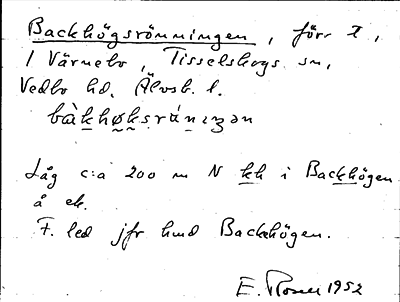 Backhögsrönningen, förr t,
/ Värnebo, Tisselskogs sn,
Vedbo hd. Älvsb. l.
bàkhøksrániŋən
Låg c:a 200 m N kk i Backhögen
å ek.
F. led jfr hmd Backhögen.
E. Rosen 1952